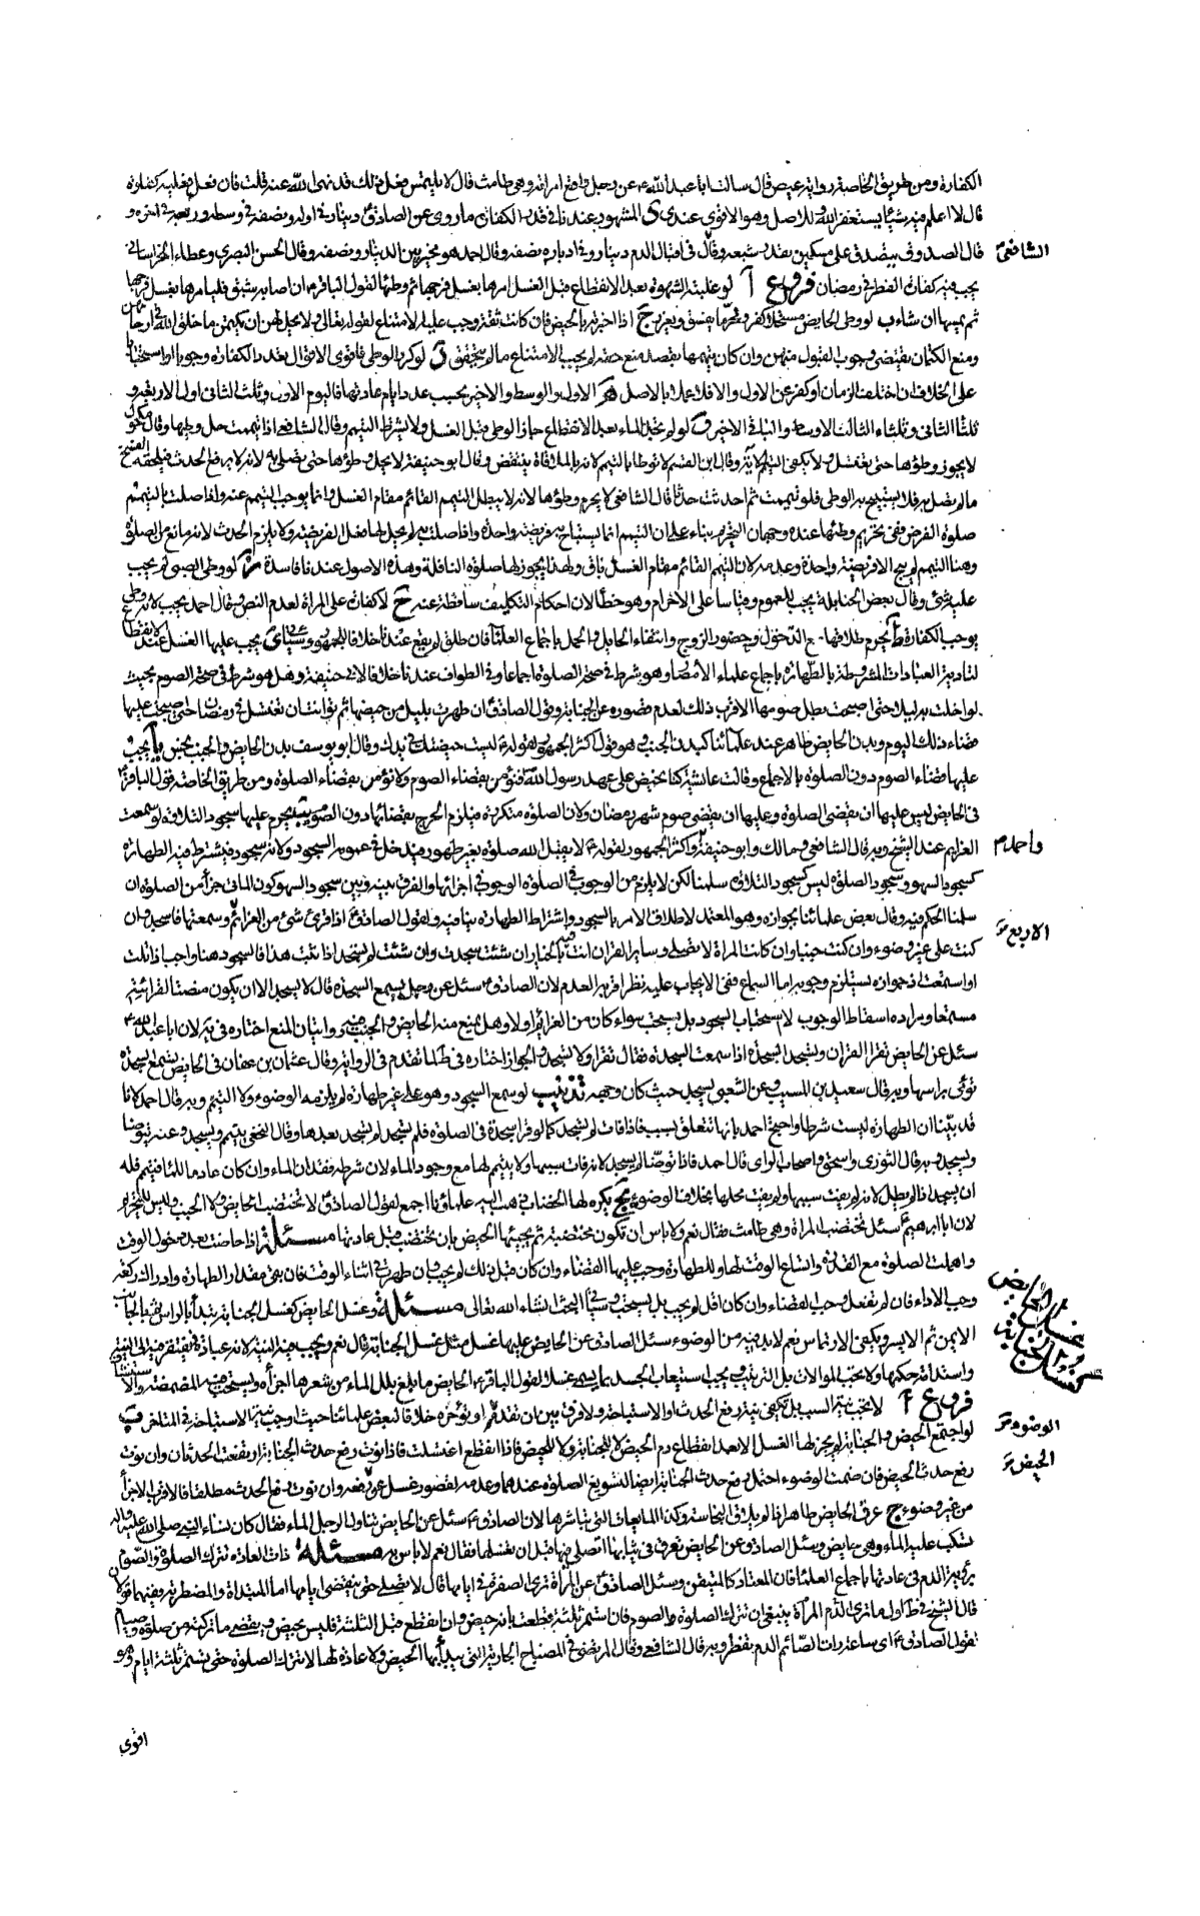 الكفارة ومن طريق الخاصة رواية عيص قال سالت ابا عبد الله ع عن رجل واقع امراته وهي طامث قال لا يلتمس فعل ذلك قد نهى الله عنه قلت فان فعل فعليه كفارة
قال لا اعلم فيه شيئا يستغفر الله وللاصل وهو الاقوى عندي المشهور عندنا في قدر الكفارة ما روى عن الصادق ع دينار في اوله ونصفه في وسطه وربعه في اخره و
قال الصدوق يتصدق على مسكين بقدر شبعه وقال في اقبال الدم دينار وفي ادباره نصفه وقال احمد هو مخير بين الدينار ونصفه وقال الحسن البصري وعطاء الخراساني
الشافعي
يجب فيه كفارة الفطر في رمضان فروع آ لو غلبته الشهوة بعد الانقطاع قبل الغسل امرها بغسل فرجها ثم وطئها لقول الباقر ع ان اصابه شبق فليامرها بغسل فرجها
ثم يمسها ان شاء ب لو وطى الحايض مستحلا كفر ومحرما يفسق ويعزر ج اذا اخبرته بالحيض فان كانت ثقة وجب عليه الامتناع لقوله تعالى ولا يحل لهن ان يكتمن ما خلق الله في ارحامهن
ومنع الكتمان يقتضي وجوب القبول منهن وان كان يتهمها بقصد منع حقه لم يجب الامتناع ما لم يتحقق د لو كرر الوطى فاقوى الاقوال تعدد الكفارة وجوبا او استحبابا
على الخلاف ان اختلف الزمان او كفر عن الاول والا فلا عملا بالاصل ه الاول والوسط والاخير بحسب عدد ايام عادتها فاليوم الاول وثلث الثاني اول الاربعة و
ثلثا الثاني وثلثاء الثالث الاوسط والباقي الاخير و لو لم تجد الماء بعد الانقطاع جاز الوطى قبل الغسل ولا يشترط التيمم وقال الشافعي اذا تيممت حل وطيها وقال مكحول
لا يجوز وطؤها حتى تغتسل ولا يكفي التيمم للاية وقال ابن القسم لا توطا بالتيمم لانه بالملاقاة ينتقض وقال ابو حنيفة لا يحل وطؤها حتى تصلى به لانه لا يرفع الحدث فيلحقه الفسخ
ما لم تصل به فلا يستبيح به الوطى فلو تيممت ثم احدثت حدثا قال الشافعي لا يحرم وطؤها لانه لا يبطل التيمم القائم مقام الغسل وانما يوجب التيمم عنه واذا صلت بالتيمم
صلوة الفرض ففي تحريم وطئها عنده وجهان التحريم بناء على ان التيمم انما يستباح به فريضة واحدة واذا صلت به لم يحل لها فعل الفريضة ولا يلزم الحدث لانه مانع من الصلوة
وهنا التيمم لم يبح الا فريضة واحدة وعدمه لان التيمم القائم مقام الغسل باق ولهذا يجوز لها صلوة النافلة وهذه الاصول عندنا فاسدة ز لو وطى الصبي لم يجب
عليه شئ وقال بعض الحنابلة يجب للعموم وقياسا على الاحرام وهو خطأ لان احكام التكليف ساقطة عنه ح لا كفارة على المراة لعدم النص وقال احمد يجب لانه وطى
يوجب الكفارة ط يحرم طلاقها مع الدخول وحضور الزوج وانتفاء الحايل والحمل باجماع العلماء فان طلق لم يقع عندنا خلافا للجمهور وسياتي ى يجب عليها الغسل عند الانقطاع
لتادية العبادات المشروطة بالطهارة باجماع علماء الامصار وهو شرط في صحة الصلوة اجماعا وفي الطواف عندنا خلافا لابي حنيفة وهل هو شرط في صحة الصوم بحيث
لو اخلت به ليلا حتى اصبحت بطل صومها الاقرب ذلك لعدم قصوره عن الجنابة ولقول الصادق ع ان طهرت بليل من حيضها ثم توانت ان تغتسل في رمضان حتى اصبحت عليها
قضاء ذلك اليوم وبدن الحايض طاهر عند علمائنا كبدن الجنب وهو قول اكثر الجمهور لقوله ع ليست حيضتك في يدك وقال ابو يوسف بدن الحايض والجنب نجس يا يجب
عليها قضاء الصوم دون الصلوة بالاجماع وقالت عائشة كنا نحيض على عهد رسول الله فنؤمر بقضاء الصوم ولا نؤمر بقضاء الصلوة ومن طريق الخاصة قول الباقر ع
في الحايض ليس عليها ان تقضي الصلوة وعليها ان تقضي صوم شهر رمضان ولان الصلوة متكررة فيلزم الحرج بقضائها دون الصوم يب يحرم عليها سجود التلاوة لو سمعت
العزايم عند الشيخ وبه قال الشافعي ومالك وابو حنيفة واكثر الجمهور لقوله ع لا يقبل الله صلوة بغير طهور فيدخل في عمومه السجود ولانه سجود فيشترط فيه الطهارة
واحمد م
كسجود السهو وسجود الصلوة ليس كسجود التلاوة سلمنا لكن لا يلزم من الوجوب في الصلوة الوجوب في اجزائها والفرق بينه وبين سجود السهو كون الماتي جزأ من الصلوة ان
سلمنا الحكم فيه وقال بعض علمائنا بجوازه وهو المعتمد لاطلاق الامر بالسجود واشتراط الطهارة ينافيه ولقول الصادق ع اذا قرئ شئ من العزايم وسمعتها فاسجد وان
كنت على غير وضوء وان كنت جنبا وان كانت المراة لا تصلى وساير القران انت فيه بالخيار ان شئت سجدت وان شئت لم تسجد اذا ثبت هذا فالسجود هنا واجب اذا تلت
الاربع
او استمعت اذ جوازه يستلزم وجوبه اما السماع ففي الايجاب عليه نظر اقربه العدم لان الصادق ع سئل عن رجل يسمع السجدة قال لا يسجد الا ان يكون منصتا لقرائته
مستمعا ومراده اسقاط الوجوب لا استحباب السجود بل يستحب سواء كان من العزايم اولا وهل يمنع منه الحايض والجنب فيه روايتان المنع اختاره في يه لان ابا عبد الله ع
سئل عن الحايض تقرا القران وتسجد السجدة اذا سمعت السجدة فقال تقرا ولا تسجد والجواز اختاره في ط لما تقدم في الرواية وقال عثمان بن عفان في الحايض تسمع السجدة
تومي براسها وبه قال سعيد بن المسيب وعن الشعبي يسجد حيث كان وجهه تذنيب لو سمع السجود وهو على غير طهارة لم يلزمه الوضوء ولا التيمم وبه قال احمد لانا
قد بينا ان الطهارة ليست شرطا واحتج احمد بانها تتعلق بسبب فاذا فات لم يسجد كما لو قرا سجدة في الصلوة فلم يسجد لم يسجد بعدها وقال النخعي يتيمم ويسجد وعنه يتوضا
ويسجد وبه قال الثوري واسحق واصحاب الراي قال احمد فاذا توضا لم يسجد لانه فات سببها ولا يتيمم لها مع وجود الماء لان شرطه فقدان الماء وان كان عادما للماء فتيمم فله
ان يسجد اذا لم يطل لانه لم يفت سببها ولم يفت محلها بخلاف الوضوء يج يكره لها الخضاب ذهب اليه علماؤنا اجمع لقول الصادق ع لا تختضب الحايض ولا الجنب وليس للتحريم
لان ابا ابرهيم ع سئل تختضب المراة وهي طامث فقال نعم ولا باس ان تكون مختضبة ثم يجيئها الحيض بان تختضب قبل عادتها مسئلة اذا حاضت بعد دخول الوقت
واهملت الصلوة مع القدرة واتساع الوقت لها وللطهارة وجب عليها القضاء وان كان قبل ذلك لم يجب وان طهرت في اثناء الوقت فان بقى مقدار الطهارة وادراك ركعة
وجب الاداء فان لم تفعل وجب القضاء وان كان اقل لم يجب بل يستحب وسياتي البحث انشاء الله تعالى مسئلة وغسل الحايض كغسل الجنابة تبتدأ بالراس ثم بالجانب
غسل الحايض كغسل الجنابة
الايمن ثم الايسر ويكفي الارتماس نعم لابد فيه من الوضوء سئل الصادق ع عن الحايض عليها غسل مثل غسل الجنابة قال نعم ويجب فيه النية لانه عبادة فيفتقر فيه الى النية
واستدامة حكمها ولا يجب الموالات بل الترتيب ويجب استيعاب الجسد بما يسمى غسلا لقول الباقر ع الحايض ما بلغ بلل الماء من شعرها اجزأه ويستحب فيه المضمضة والاستنشاق
فروع آ لا يجب نية السبب بل تكفي نية رفع الحدث او الاستباحة ولا فرق بين ان تقدم او يؤخره خلافا لبعض علمائنا حيث اوجب نية الاستباحة في المتاخر ب
الوضوء
لو اجتمع الحيض والجنابة لم يجز لها الغسل الا بعد انقطاع دم الحيض لا للجنابة ولا للحيض فاذا انقطع اغتسلت فاذا نوت رفع حدث الجنابة ارتفعت الحدثان وان نوت
الحيض
رفع حدث الحيض فان ضمت الوضوء احتمل رفع حدث الجنابة ايضا لتسويغ الصلوة عندهما وعدمه لقصور غسل عن رفعه وان نوت رفع الحدث مطلقا فالاقرب الاجزأ
من غير وضوء ج عرق الحايض طاهر اذا لم يلاق النجاسة وكذا المايعات التي تباشرها لان الصادق ع سئل عن الحايض تناول الرجل الماء فقال كان نساء النبي صلى الله عليه واله
تسكب عليه الماء وهي حايض وسئل الصادق ع عن الحايض تعرق في ثيابها اتصلى فيها قبل ان تغسلها فقال نعم لا باس به مسئلة ذات العادة تترك الصلوة والصوم
برؤية الدم في عادتها باجماع العلماء فان المعتاد كالمتيقن وسئل الصادق ع عن المراة ترى الصفرة في ايامها قال لا تصلى حتى ينقضي ايامها اما المبتداة والمضطربة ففيهما قولان
قال الشيخ في ط اول ما ترى الدم المرأة ينبغي ان تترك الصلوة والصوم فان استمر ثلثة قطعت بانه حيض وان انقطع قبل الثلثة فليس بحيض وتقضى ما تركته من صلوة وصيام
لقول الصادق ع اى ساعة رات الصائم الدم تفطر وبه قال الشافعي وقال المرتضى في المصباح الجارية التي يبدأ بها الحيض ولا عادة لها لا تترك الصلوة حتى يستمر ثلثة ايام وهو
اقوى